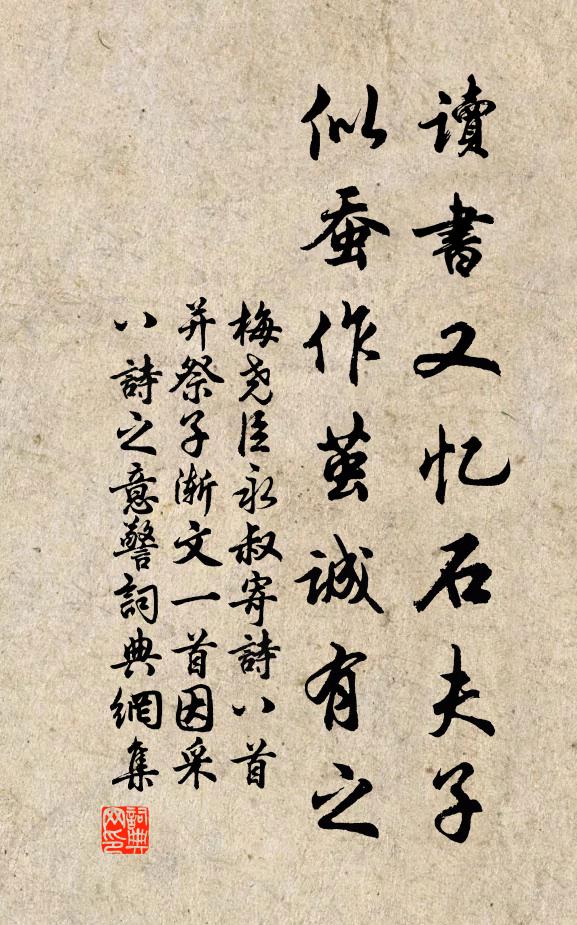 讀書又忆石夫子
似蚕作茧誠有之
梅尧臣永叔寄詩八首
并祭子渐文一首因采
八詩之意警詞典網集
詞典
网印